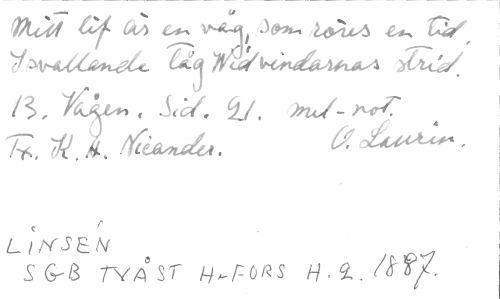 Mitt lif är en våg, som röres en tid
I svallande tåg Wid vindarnas strid.
13. Vågen. Sid. 21. mel-not.
Tx. K. A. Nicander. O. Laurin.
LINSÉN
SGB TVÅST H-FORS H. 2. 1887.